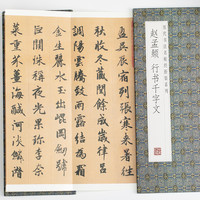 盈昃辰宿列張寒来暑往
秋收冬藏閏餘成歲律呂
調陽雲騰致雨露結為霜
金生麗水玉出崐岡劍號
巨闕珠稱夜光果珍李柰
菜重芥薑海鹹河淡鱗潛
赵孟頫 行书千字文